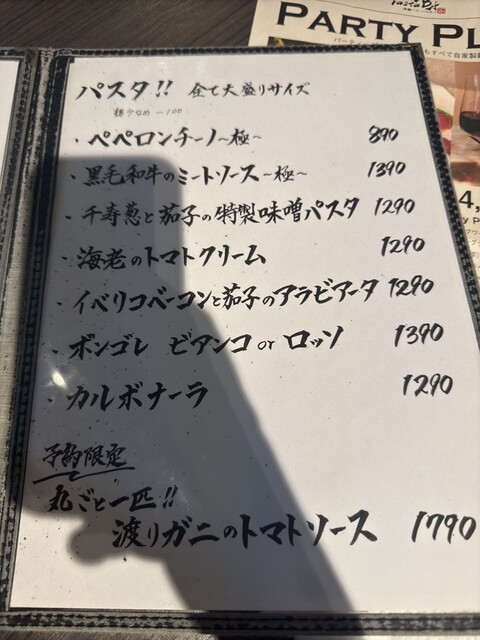 PARTY PL
パスタ!! 全て大盛りサイズ
麺少なめ -100
・ペペロンチーノ~極~ 890
・黒毛和牛のミートソース~極~ 1390
・千寿葱と茄子の特製味噌パスタ 1290
・海老のトマトクリーム 1290
・イベリコベーコンと茄子のアラビアータ 1290
・ボンゴレ ビアンコ or ロッソ 1390
・カルボナーラ 1290
予約限定
丸ごと一匹!!
渡りガニのトマトソース 1790